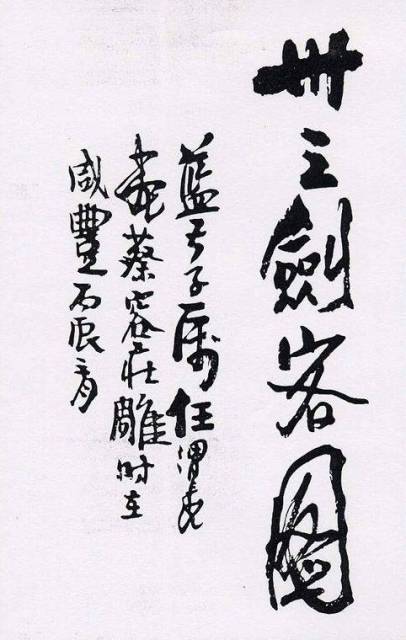 卅三劍客圖
藍子属任渭長
畫蔡容莊雕时在
咸豐丙辰